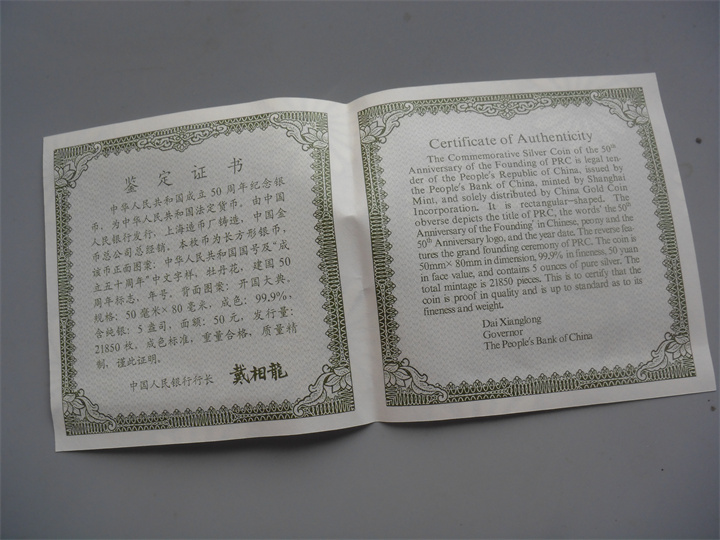 鉴定证书
中华人民共和国成立50周年纪念银
币，为中华人民共和国法定货币。由中国
人民银行发行，上海造币厂铸造，中国金
币总公司总经销。本枚币为长方形银币，
该币正面图案：中华人民共和国国号及"成
立五十周年"中文字样，牡丹花，建国50
周年标志，年号。背面图案：开国大典。
规格：50毫米×80毫米，成色：99.9%，
含纯银：5盎司，面额：50元，发行量：
21850枚。成色标准，重量合格，质量精
制，谨此证明。
中国人民银行行长 戴相龍
Certificate of Authenticity
The Commemorative Silver Coin of the 50th
Anniversary of the Founding of PRC is legal ten-
der of the People's Republic of China, issued by
the People's Bank of China, minted by Shanghai
Mint, and solely distributed by China Gold Coin
Incorporation. It is rectangular-shaped. The
obverse depicts the title of PRC, the words' the 50th
Anniversary of the Founding' in Chinese, peony and the
50th Anniversary logo, and the year date. The reverse fea-
tures the grand founding ceremony of PRC. The coin is
50mm× 80mm in dimension, 99.9% in fineness, 50 yuan
in face value, and contains 5 ounces of pure silver. The
total mintage is 21850 pieces. This is to certify that the
coin is proof in quality and is up to standard as to its
fineness and weight.
Dai Xianglong
Governor
The People's Bank of China